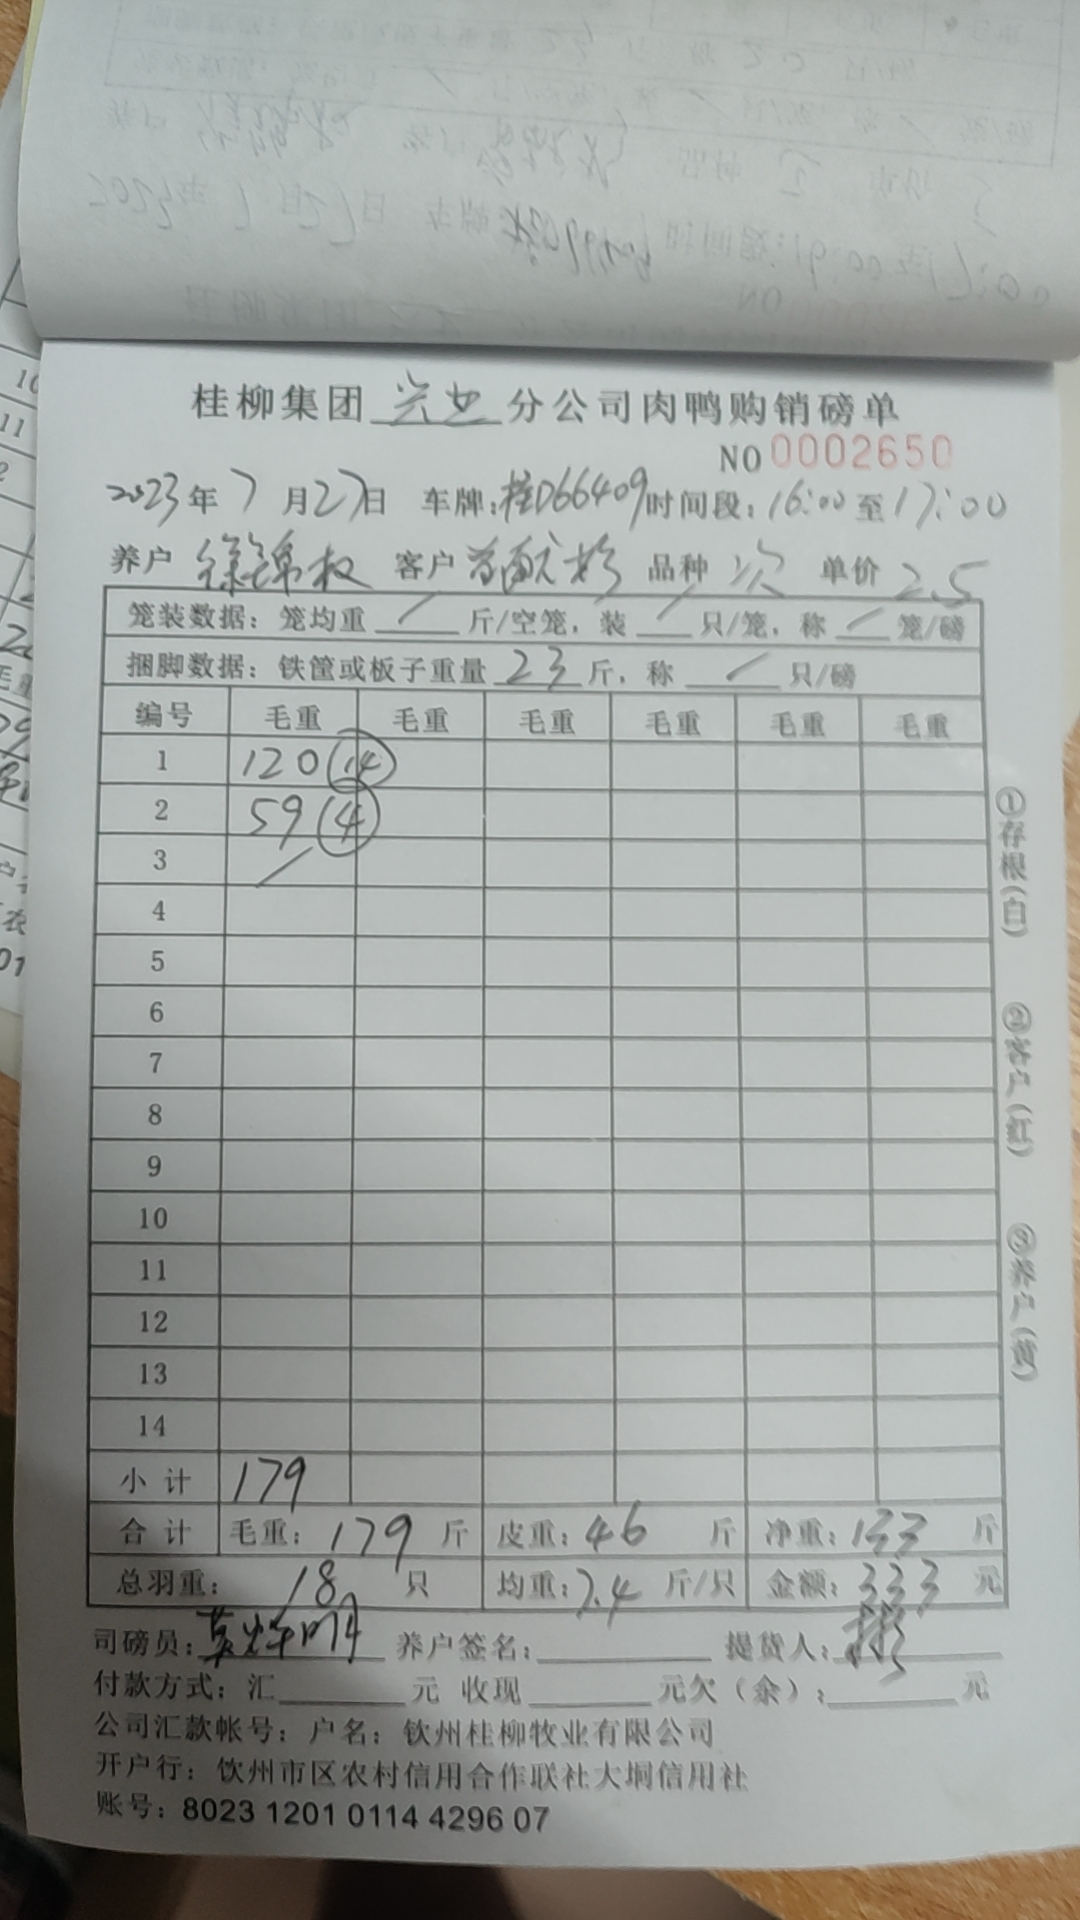 桂柳集团 兴业 分公司肉鸭购销磅单
NO 0002650
2023年 7 月 27日 车牌:桂D66409 时间段:16:00 至 17:00
养户 徐锦权 客户 品种 次 单价 2.5
笼装数据: 笼均重 / 斤/空笼, 装 / 只/笼, 称 / 笼/磅
捆脚数据: 铁筐或板子重量 23 斤, 称 / 只/磅
编号 毛重 毛重 毛重 毛重 毛重 毛重
1 120 (14)
2 59 (4)
3 /
4
5
6
7
8
9
10
11
12
13
14
小 计 179
合 计 毛重: 179 斤 皮重: 46 斤 净重: 133 斤
总羽重: 18 只 均重: 7.4 斤/只 金额: 333 元
司磅员: 养户签名: 提货人:
付款方式: 汇 元 收现 元欠(余): 元
公司汇款帐号: 户名: 钦州桂柳牧业有限公司
开户行: 钦州市区农村信用合作联社大垌信用社
账号: 8023 1201 0114 4296 07
①存根(白) ②客户(红) ③养户(黄)